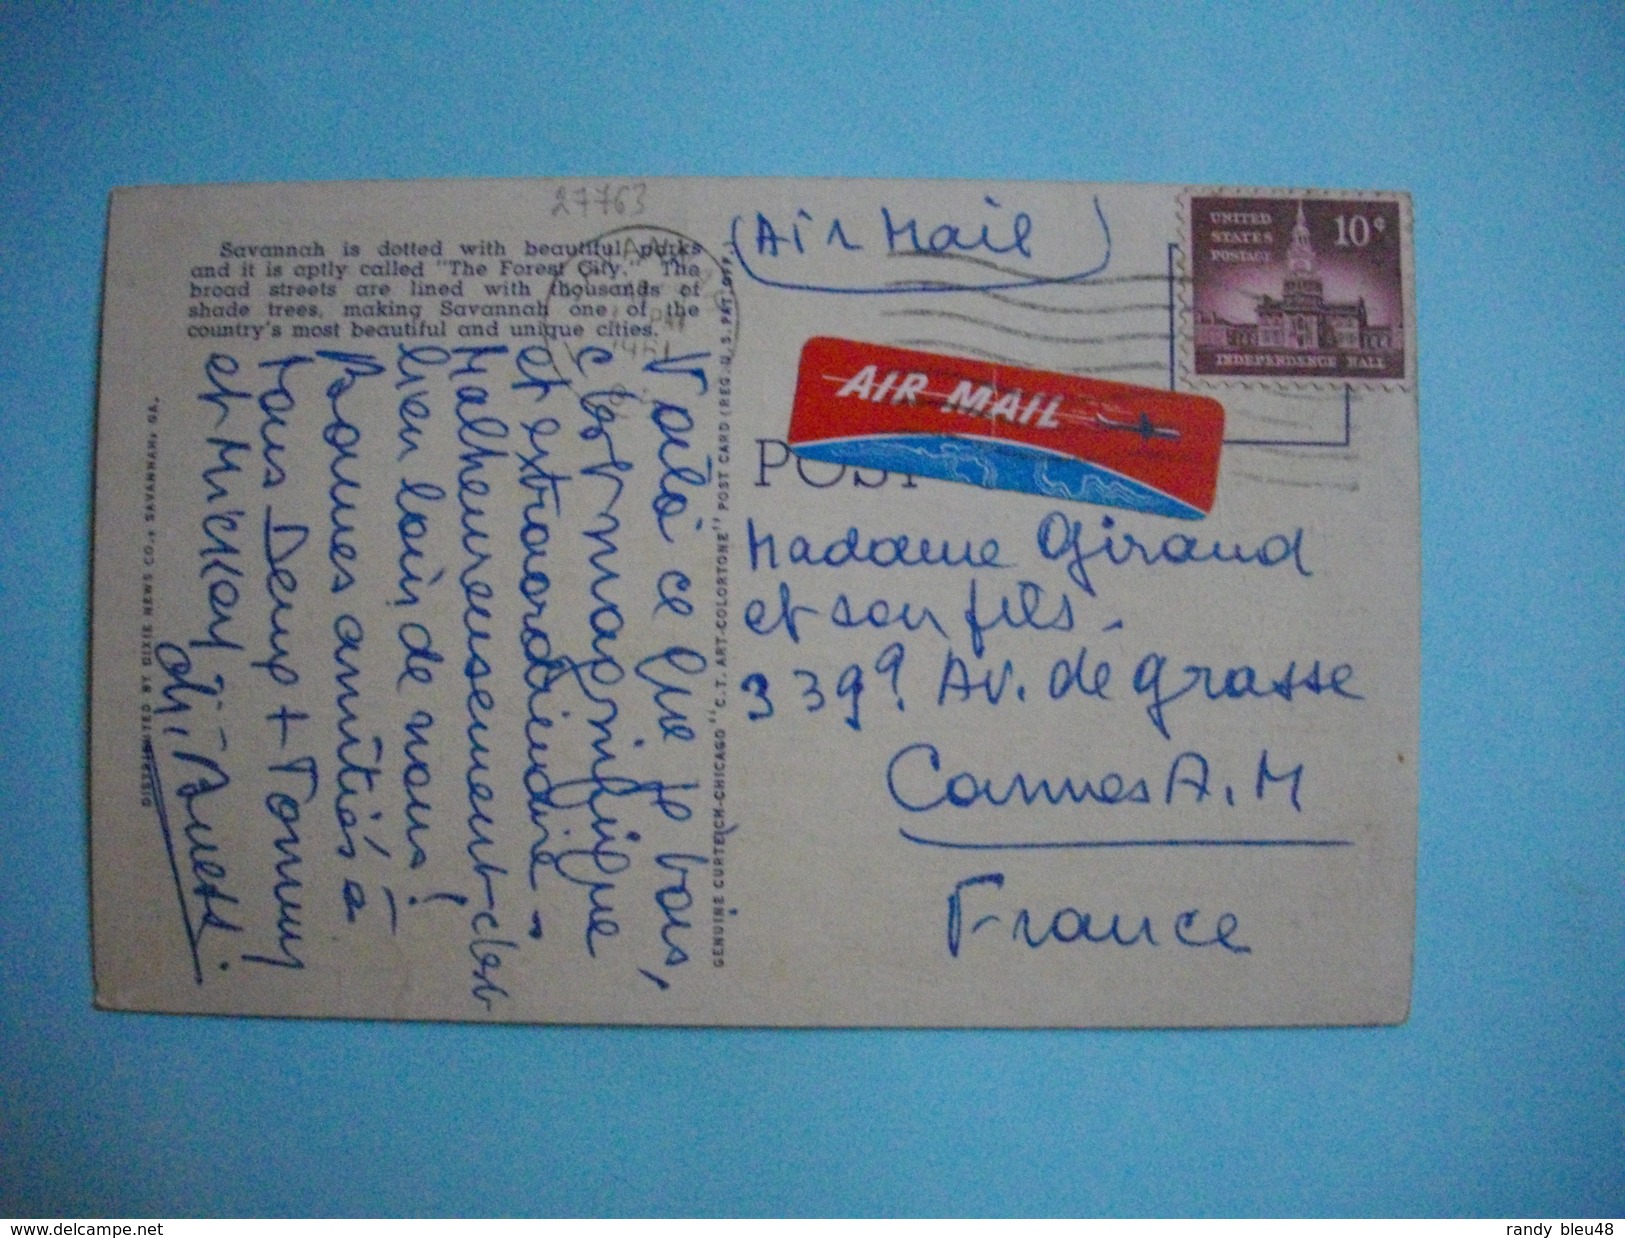 27763
Savannah is dotted with beautiful parks
and it is aptly called "The Forest City." The
broad streets are lined with thousands of
shade trees, making Savannah one of the
country's most beautiful and unique cities.
Voilà ce que je vois,
c'est magnifique
et extraordinaire -
Malheureusement c'est
bien loin de nous !
Bonnes amitiés à
tous Deux + Tommy
et Mickey -
DISTRIBUTED BY DIXIE NEWS CO., SAVANNAH, GA.
GENUINE CURTEICH-CHICAGO "C.T. ART-COLORTONE" POST CARD (REG. U.S. PAT. OFF.)
(Air Mail)
UNITED STATES POSTAGE 10¢
INDEPENDENCE HALL
AIR MAIL
POST
Madame Giraud
et son fils -
339 Av. de grasse
Cannes A.M
France
delcampe.net
randy_bleu48